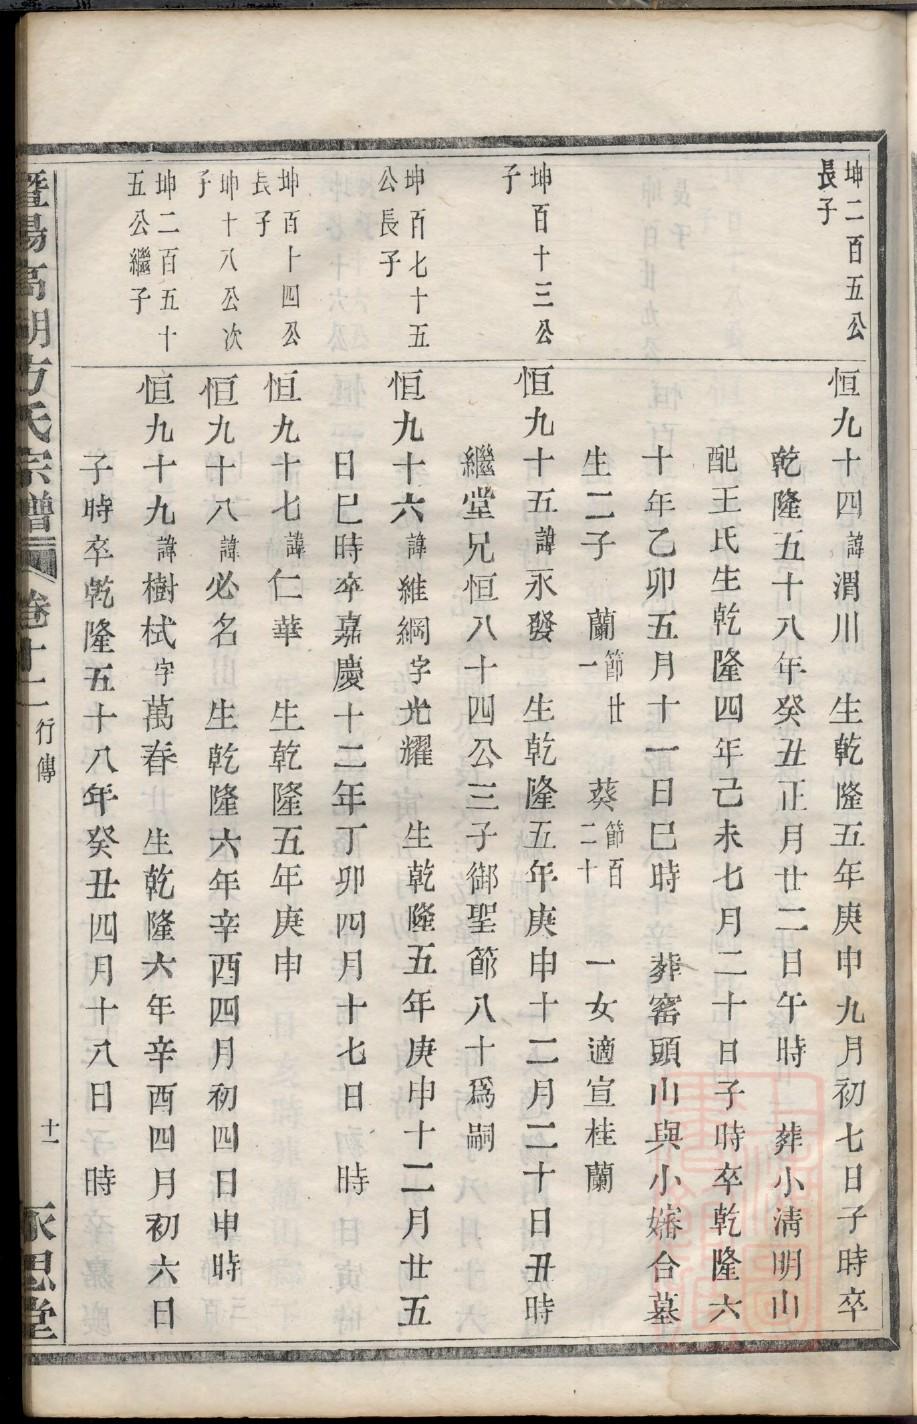 坤二百五公
長子
恒九十四諱渭川　生乾隆五年庚申九月初七日子時卒
乾隆五十八年癸丑正月廿二日午時　葬小淸明山
配王氏生乾隆四年己未七月二十日子時卒乾隆六
十年乙卯五月十一日巳時　葬窰頭山與小嬸合墓
生二子　蘭節廿一　葵節百二十　一女適宣桂蘭
坤百十三公
子
恒九十五諱永發　生乾隆五年庚申十二月二十日丑時
繼堂兄恒八十四公三子御聖節八十爲嗣
坤百七十五
公長子
恒九十六諱維綱字光耀　生乾隆五年庚申十二月廿五
日巳時卒嘉慶十二年丁卯四月十七日　時
坤百十四公
長子
恒九十七諱仁華　生乾隆五年庚申
坤十八公次
子
恒九十八諱必名　生乾隆六年辛酉四月初四日申時
坤二百五十
五公繼子
恒九十九諱樹栻字萬春　生乾隆六年辛酉四月初六日
子時卒乾隆五十八年癸丑四月十八日　時
暨陽高湖方氏宗譜　卷十二　行傳　十一　永思堂